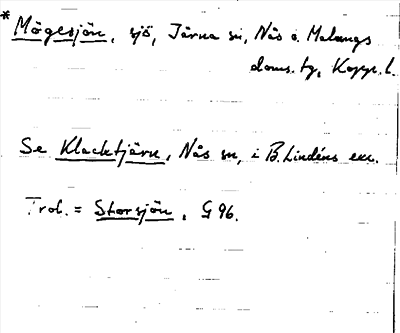 * Mögesjön, sjö, Järna sn, Nås o. Malungs
doms. tg, Kopp. l.
Se Klacktjärn, Nås sn, i B. Lindéns exc.
Trol. = Storsjön, G 96.